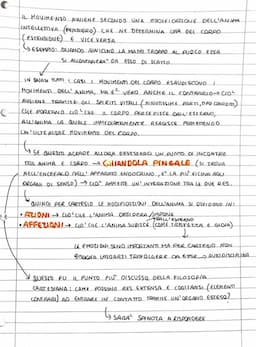 IL MOVIMENTO AVVIENE SECONDO UNA MODIFICAZIONE DELL'ANIMA
INTELLETTIVA (PENSIERO) CHE NE DETERMINA UNA DEL CORPO
(ESTENSIONE) E VICEVERSA
ESEMPIO: QUANDO AVVICINO LA MANO TROPPO AL FUOCO ESSA
SI ALLONTANERA' DA ESSO DI SCATTO
IN QUASI TUTTI I CASI I MOVIMENTI DEL CORPO ESAUDISCONO I
MOVIMENTI DELL'ANIMA, MA E' VERO ANCHE IL CONTRARIO → CIO'
AVVIENE TRAMITE GLI SPIRITI VITALI (
CHE PORTANO CIO' CHE IL CORPO PERCEPISCE DALL'ESTERNO,
ALL'ANIMA LA QUALE IMMEDIATAMENTE REAGISCE PROVOCANDO
UN'ULTERIORE MOVIMENTO DEL CORPO.
SE QUESTO ACCADE ALLORA DEV'ESSERCI UN PUNTO DI INCONTRO
TRA ANIMA E CORPO → GHIANDOLA PINEALE (SI TROVA
NELL'ENCEFALO NELL'APPARATO ENDOCRINO, E' LA PIU' VICINA AGLI
ORGANI DI SENSO) → CIO' AMMETTE UN'INTERAZIONE TRA LE DUE RES.
QUINDI PER CARTESIO LE MODIFICAZIONI DELL'ANIMA SI DIVIDONO IN:
• AZIONI → CIO' CHE L'ANIMA ORDINA/IMPONE
• AFFEZIONI → CIO' CHE L'ANIMA SUBISCE DALL'ESTERNO (COME TRISTEZZA E GIOIA)
LE EMOZIONI SONO IMPORTANTI MA PER CARTESIO NON
BISOGNA LASCIARSI TRAVOLGERE DA ESSE → AUTODISCIPLINA
QUESTO FU IL PUNTO PIU' DISCUSSO DELLA FILOSOFIA
CARTESIANA: COME POSSONO RES EXTENSA E COGITANS (ELEMENTI
CONTRARI) AD ENTRARE IN CONTATTO TRAMITE UN'ORGANO ESTESO?
SARA' SPINOZA A RISPONDERE